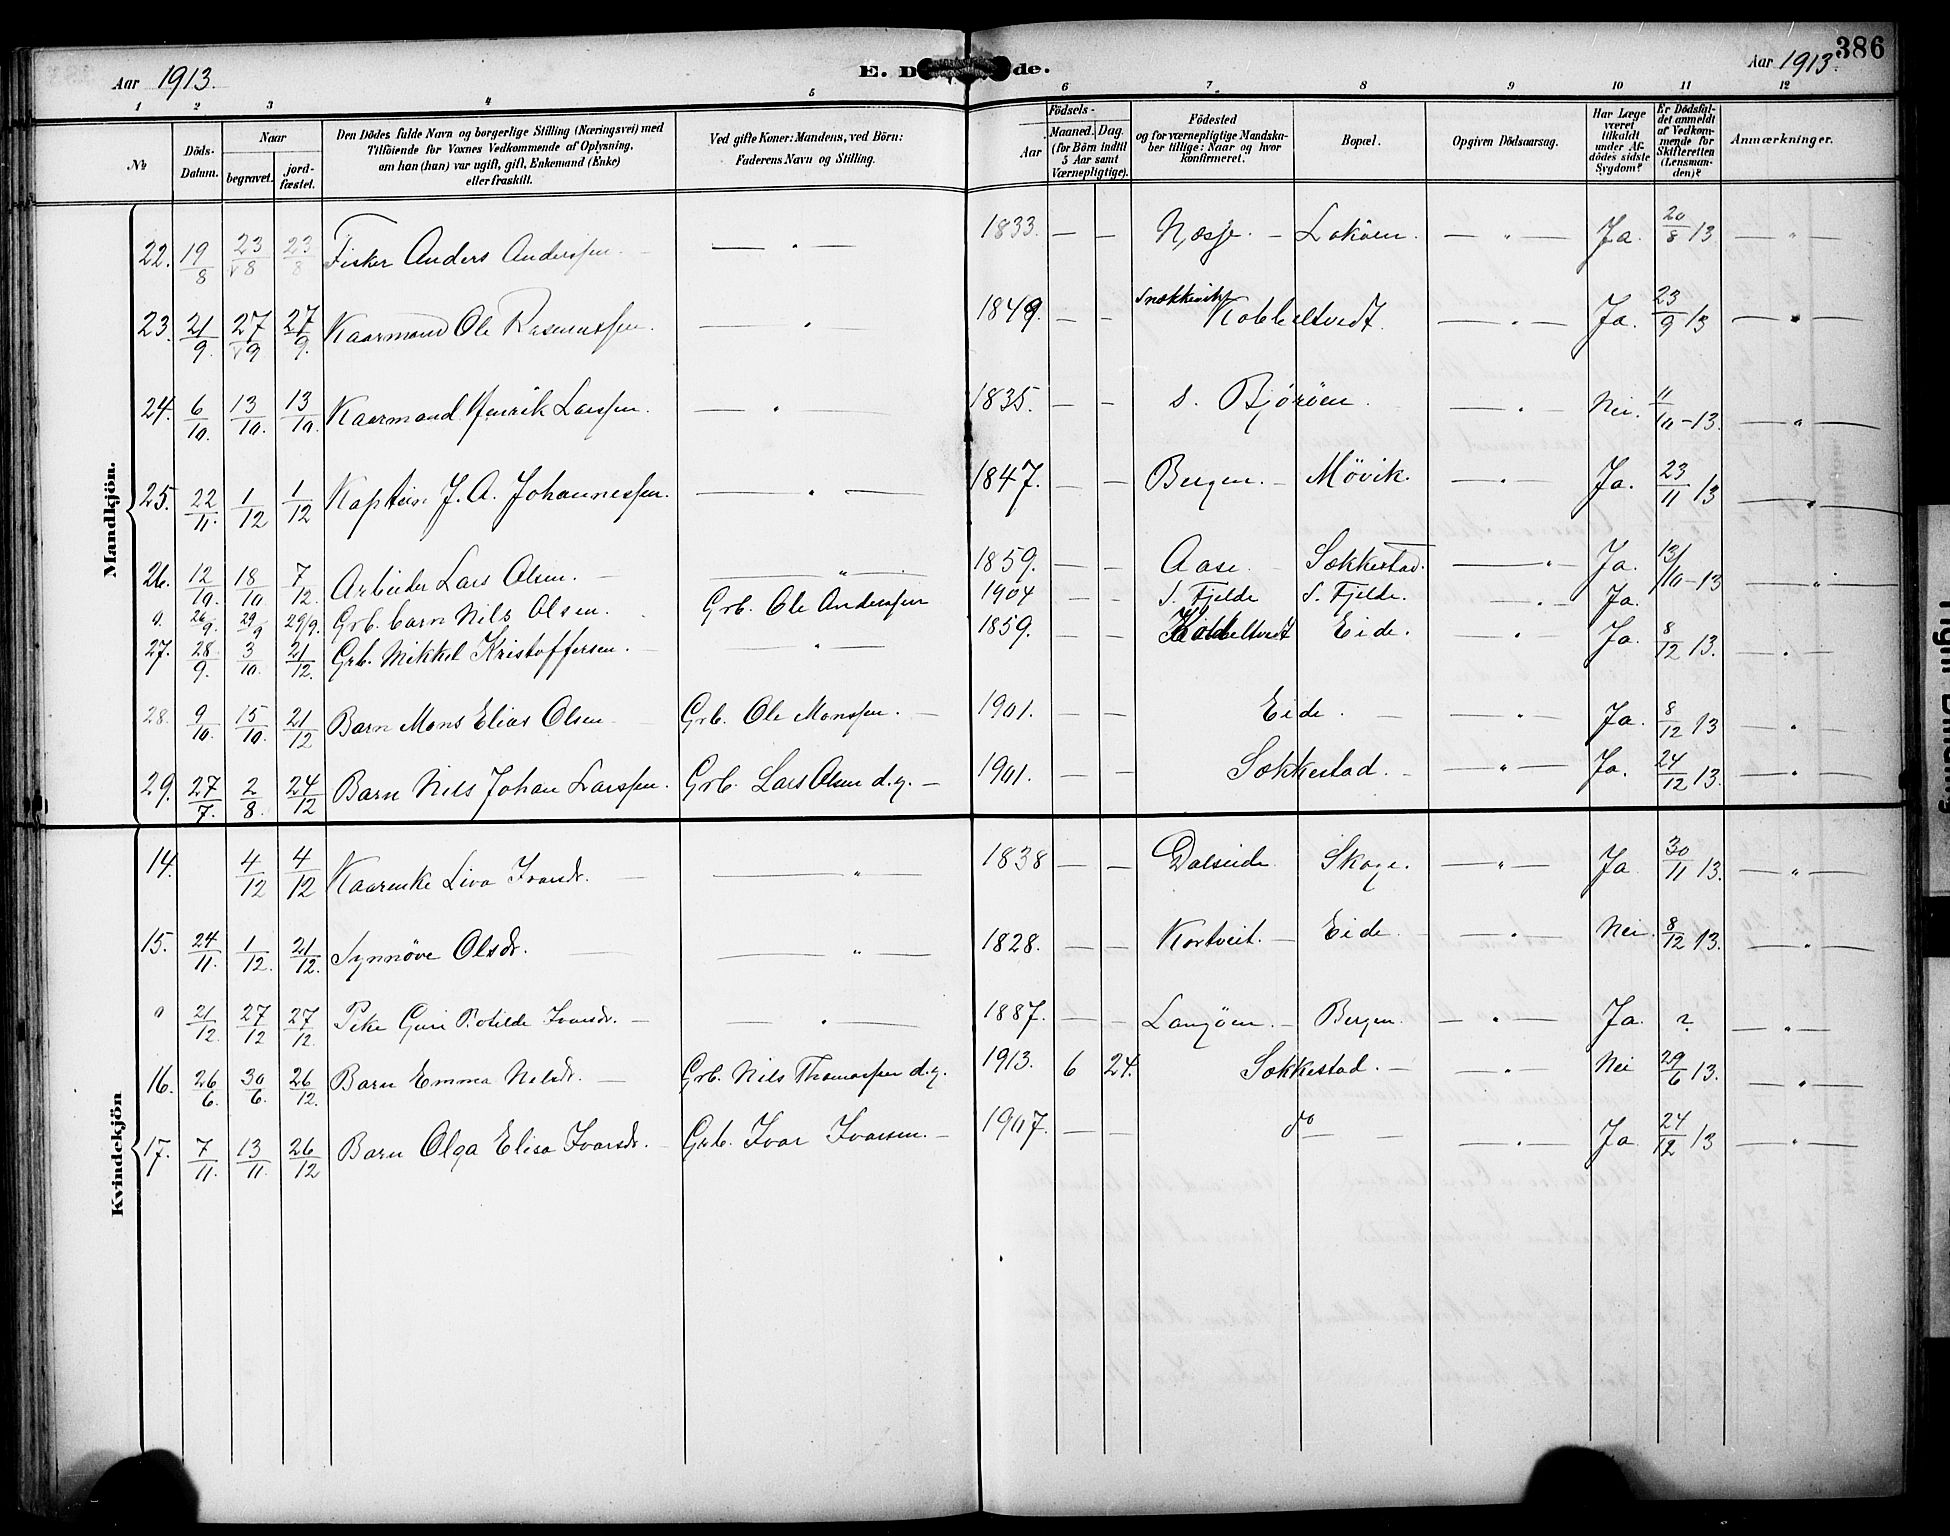 386
Aar 1913.
E. D de.
Aar 1913.
1 2 3 4 5 6 7 8 9 10 11 12
№
Døds-Datum.
Naar
begravet.
jord-fæstet.
Den Dødes fulde Navn og borgerlige Stilling (Næringsvei) med
Tilføiende for Voxnes Vedkommende af Oplysning,
om han (hun) var ugift, gift, Enkemand (Enke)
eller fraskilt.
Ved gifte Koner: Mandens, ved Börn:
Faderens Navn og Stilling.
Födsels-
Aar
Maaned. Dag.
(for Börn indtil
5 Aar samt
Værnepligtige).
Födested
og for værnepligtige Mandska-
ber tillige: Naar og hvor
konfirmeret.
Bopæl.
Opgiven Dödsaarsag.
Har Læge
været
tilkaldt
under Af-
dödes sidste
Sygdom?
Er Dödsfal-
det anmeldt
af Vedkom-
mende for
Skifteretten
(Lensman-
den)?
Anmærkninger.
Mandkjön.
22. 19/8 23/8 23/8 Fisker Anders Anderssen. — " — 1833. — — Næsje. — Loköen. — " — Ja. 20/8 13 — " —
23. 21/9 27/9 27/9. Kaarmand Ole Rasmussen. — " 1849. — — Snekkevik Kobbeltvedt. — " — Ja. 23/9 13 — " —
24. 6/10. 13/10. 13/10. Kaarmand Henrik Larssen. — " 1835. — — S. Björöen. — " — Nei. 11/10-13. — " —
25. 22/11. 1/12 1/12 Kaptein J. A. Johannessen. — " — 1847. — — Bergen. — Mövik. — " — Ja. 23/11 13 — " —
26. 12/10. 18/10 7/12. Arbeider Lars Olsen. — " — 1859. — — Aase. Sækkestad. — " Ja. 13/10-13 — " —
0. 26/9. 29/9 29/9. Grb. barn Nils Olsen. Grb. Ole Anderssen 1904 — — S. Fjelde S. Fjelde. — " — Ja.
27. 28/9. 3/10. 21/12. Grb. Mikkel Kristoffersen. — " — 1859. — — Kobbeltvedt Eide. " Ja. 8/12 13. — " —
28. 9/10. 15/10. 21/12 Barn Mons Elias Olsen Grb. Ole Monssen. — 1901. — — Eide. — — " — Ja. 8/12 13 — " —
29. 27/7. 2/8. 24/12 Barn Nils Johan Larssen. Grb. Lars Olsen d.y. — 1901. — — Sækkestad. — — " — Ja. 24/12 13. — " —
Kvindekjön
14. 4/12 4/12 Kaarenke Liva Ivarsdr. — — " 1838 — — Dalseide Skoge. — " — Ja 30/11 13. — " —
15. 24/11. 1/12. 21/12. Synnöve Olsdr. — — " — 1828. — — Kortveit. — Eide. — " — Nei. 8/12 13. — " —
0 21/12. 27/12 27/12. Pike Guri Botilde Ivarsdr. — — " — 1887. — — Langöen. — Bergen. — " — Ja. ? — " —
16. 26/6. 30/6. 26/12. Barn Emma Nilsdr. — Grb. Nils Thomassen d.y. 1913. 6 24. Sækkestad. — — " — Nei 29/6 13. — " —
17. 7/11. 13/11. 26/12 Barn Olga Elisa Ivarsdr. — Grb. Ivar Ivarsen. — 1907. — — do — — — " — Ja 24/12 13 — " —